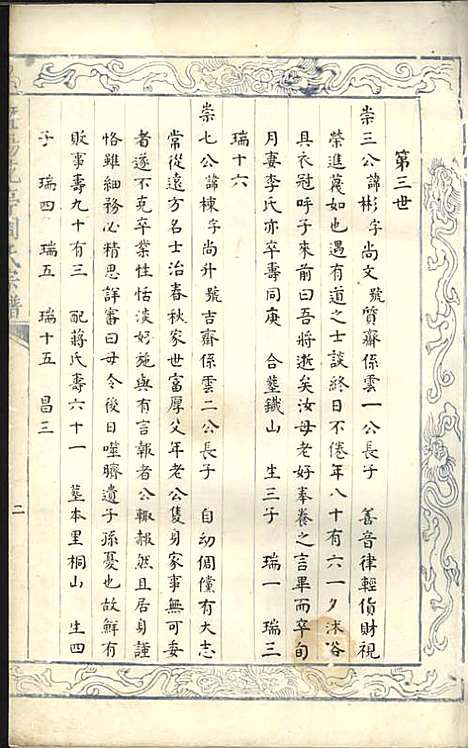 第三世
崇三公諱彬字尚文 號質齋係雲一公長子 善音律輕貨財視
榮進蔑如也遇有道之士談終日不倦年八十有六一夕沐浴
具衣冠呼子來前曰吾將逝矣汝母老好奉養之言畢而卒旬
月妻李氏亦卒壽同庚 合墓鐵山 生三子 瑞一 瑞三
瑞十六
崇七公諱棟字尚升號吉齋係雲二公長子 自幼倜儻有大志
常從遠方名士治春秋家世富厚父年老公隻身家事無可委
者遂不克卒業性恬淡好施與有言報者公輒赧然且居身謹
恪雖細務必精思詳審曰毋令後日噬臍遺子孫憂也故鮮有
敗事壽九十有三 配蔣氏壽六十一 墓本里桐山 生四
子 瑞四 瑞五 瑞十五 昌三
氏宗譜
二